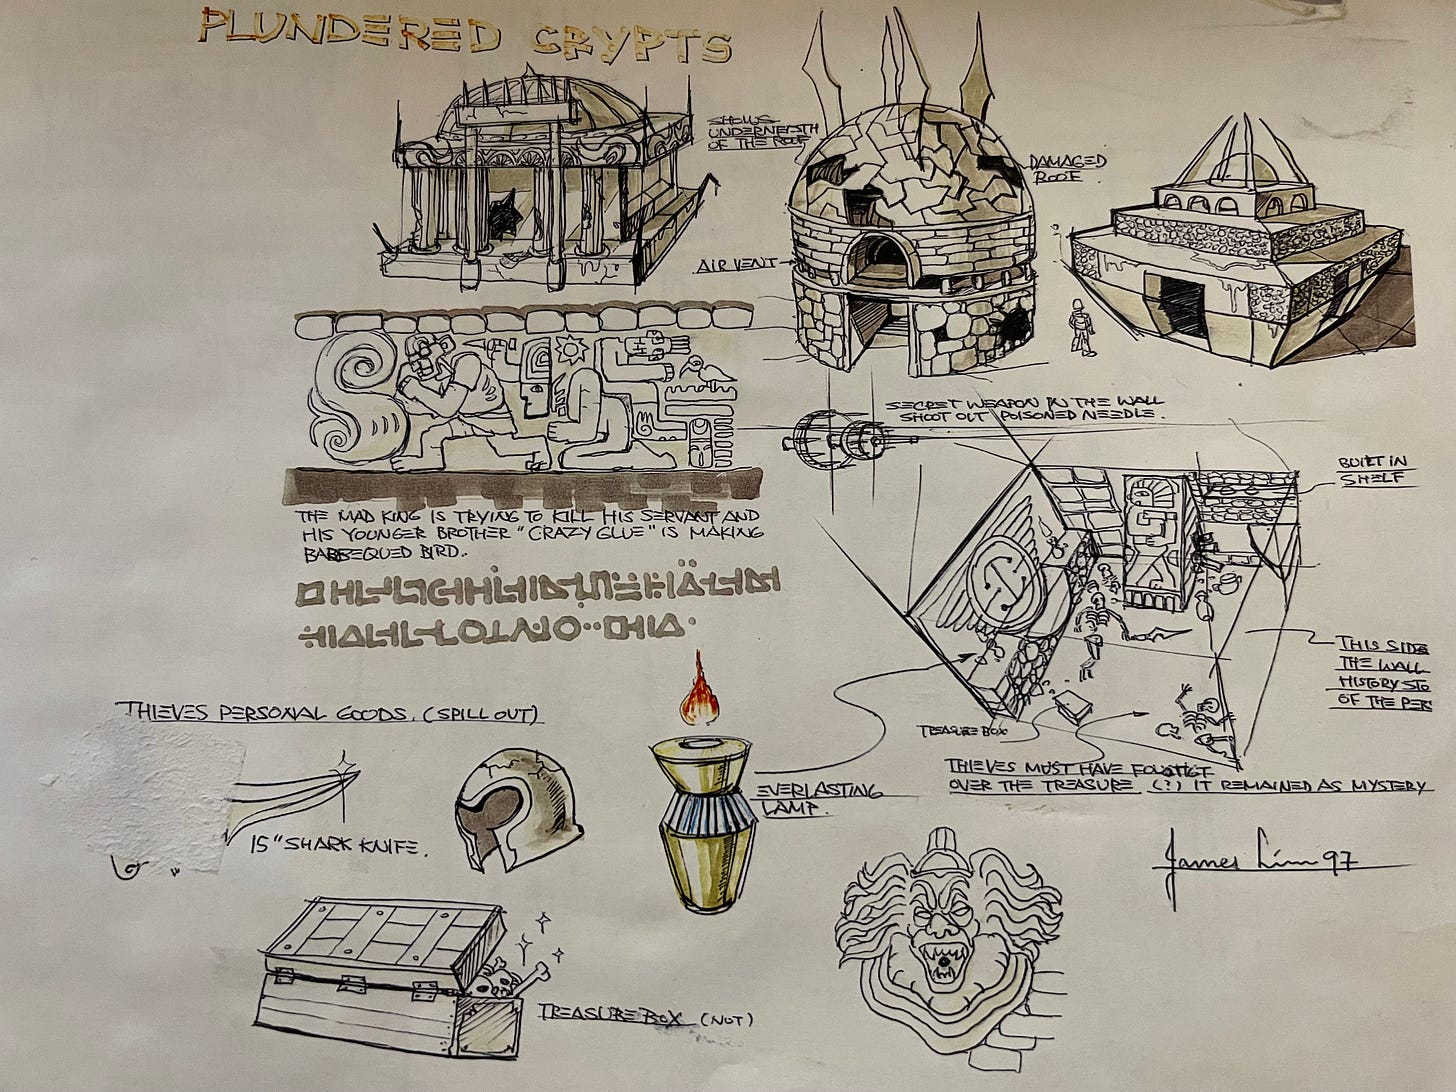 PLUNDERED CRYPTS
SHOWS
UNDERNEATH
OF THE ROOF
DAMAGED
ROOF.
AIR VENT
SECRET WEAPON IN THE WALL
SHOOT OUT POISONED NEEDLE.
BUILT IN
SHELF
THE MAD KING IS TRYING TO KILL HIS SERVANT AND
HIS YOUNGER BROTHER "CRAZY GLUE" IS MAKING
BARBEQUED BIRD..
THIS SIDE
THE WALL
HISTORY STO
OF THE PER
TREASURE BOX
THIEVES MUST HAVE FOUGHT
OVER THE TREASURE (?) IT REMAINED AS MYSTERY
THIEVES PERSONAL GOODS. (SPILL OUT)
EVERLASTING
LAMP.
15" SHARK KNIFE.
James Lim 97
TREASURE BOX (NOT)